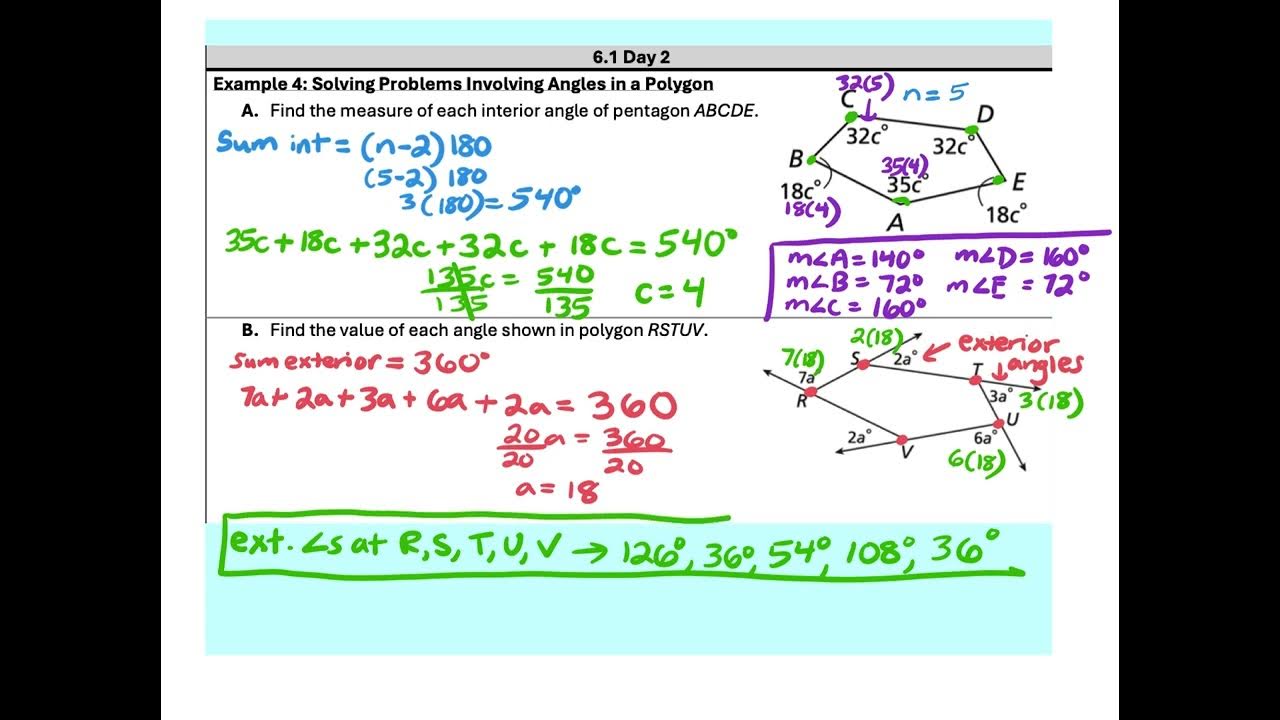 6.1 Day 2
Example 4: Solving Problems Involving Angles in a Polygon
A. Find the measure of each interior angle of pentagon ABCDE.
Sum int = (n-2) 180
(5-2) 180
3 (180) = 540°
35c + 18c + 32c + 32c + 18c = 540°
135c = 540
135 135
c = 4
32(5)
C
n = 5
D
32c°
32c°
B
35(4)
35c°
E
18c°
18(4)
A
18c°
m∠A = 140° m∠D = 160°
m∠B = 72° m∠E = 72°
m∠C = 160°
B. Find the value of each angle shown in polygon RSTUV.
Sum exterior = 360°
7a + 2a + 3a + 6a + 2a = 360
20a = 360
20 20
a = 18
2(18)
exterior
angles
7(18)
S
2a°
T
7a°
R
3a°
3(18)
U
2a°
6a°
V
6(18)
ext. ∠s at R, S, T, U, V → 126°, 36°, 54°, 108°, 36°